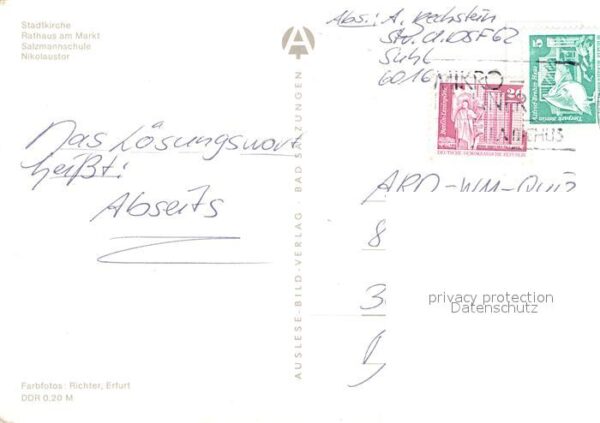 Stadtkirche
Rathaus am Markt
Salzmannschule
Nikolaustor
Das Lösungswort
heißt:
Abseits
Farbfotos: Richter, Erfurt
DDR 0,20 M
AUSLESE-BILD-VERLAG · BAD SALZUNGEN
Abs.: A. Rechstein
Str. d. DSF 62
Suhl
6016
MIKRO
24
DEUTSCHE DEMOKRATISCHE REPUBLIK
5
Tierpark Berlin
ARD-WM-Quiz
8
3
privacy protection
Datenschutz